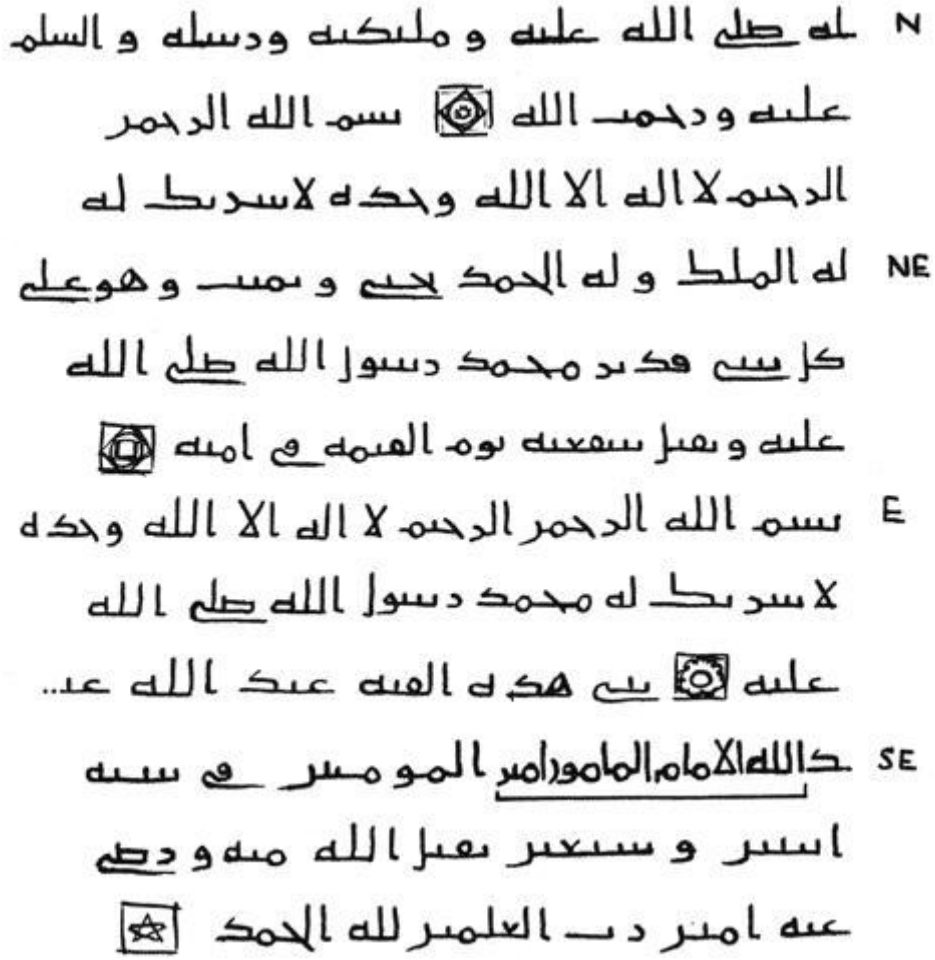 N له صلى الله عليه و ملئكته ورسله و السلم
عليه ورحمت الله بسم الله الرحمن
الرحيم لا اله الا الله وحده لا شريك له
NE له الملك و له الحمد يحيى و يميت و هو على
كل شى قدير محمد رسول الله صلى الله
عليه و يقبل شفعته يوم القيمه فى امته
E بسم الله الرحمن الرحيم لا اله الا الله وحده
لا شريك له محمد رسول الله صلى الله
عليه بنى هذه القبه عبد الله عبـ...
SE ـد الله الامام المامون امير المومنين فى سنه
اثنين و سبعين تقبل الله منه و رضى
عنه امين رب العلمين لله الحمد